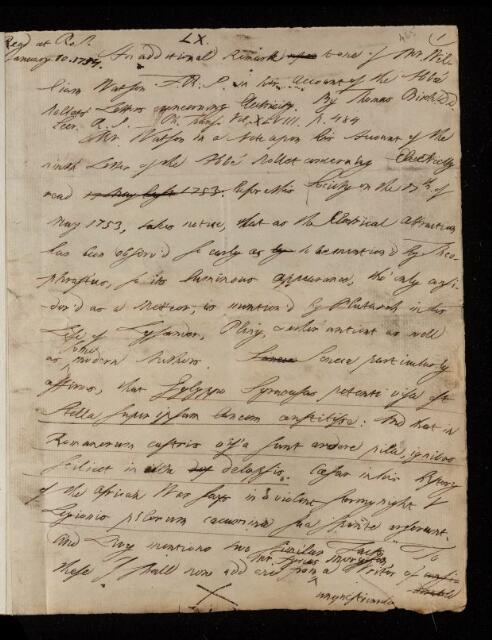 LX.
465
(1
Read at R.S.
January 10. 1754.
An additional Remark to one of Mr. Wil-
liam Watson F.R.S. in his Account of the Abbé
Nollet's Letters concerning Electricity. By Thomas Birch D.D.
Secr. R.S. Ph. Trans. Vol. XLVIII. p. 484
Mr. Watson in a Note upon his Account of the
ninth Letter of the Abbé Nollet concerning Electricity
read 1753. before this Society on the 17th of
May 1753, takes notice, that as the Electrical attraction
has been observ'd so early as to be mention'd by Theo-
phrastus, so its luminous appearance, tho' only consi-
der'd as a Meteor, is mention'd by Plutarch in his
Life of Lysander, Pliny, & other antient as well
as modern Authors. Seneca particularly
affirms, that Gylippo Syracusas petenti visa est
Stella supra ipsam lanceam constitisse: And that in
Romanorum castris visa sunt ardere pila, ignibus
scilicet in illa delapsis. Cæsar in his History
of the African War says in a violent stormy night
Legionis pilorum cacumina sua sponte arserunt.
And Livy mentions two similar Facts. To
these I shall now add one from a Writer of